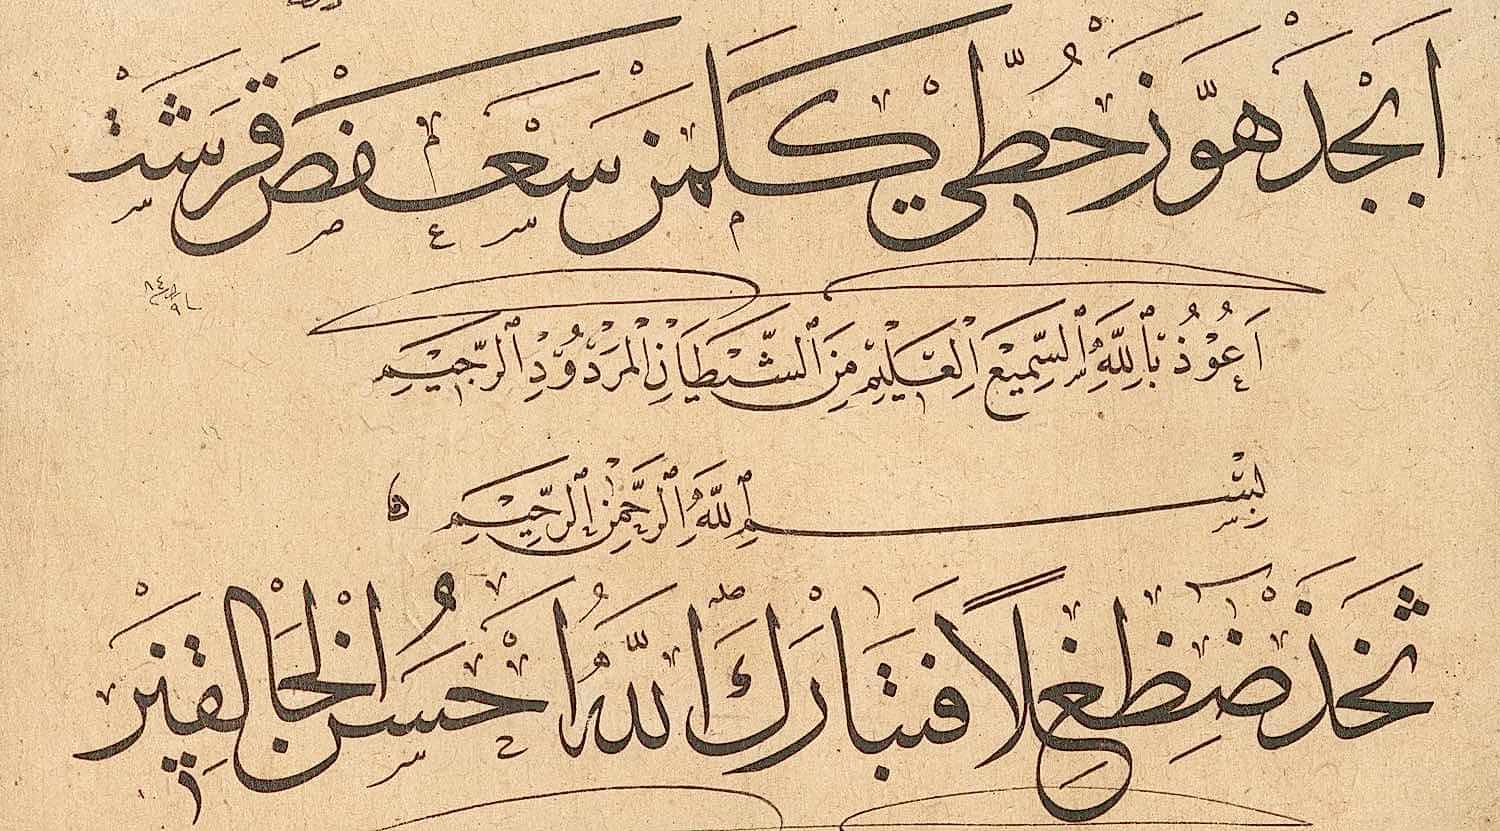 ابجد هوز حطي كلمن سعفص قرشت
اعوذ بالله السميع العليم من الشيطان المردود الرجيم
بسم الله الرحمن الرحيم
ثخذ ضظغلا فتبارك الله احسن الخالقين